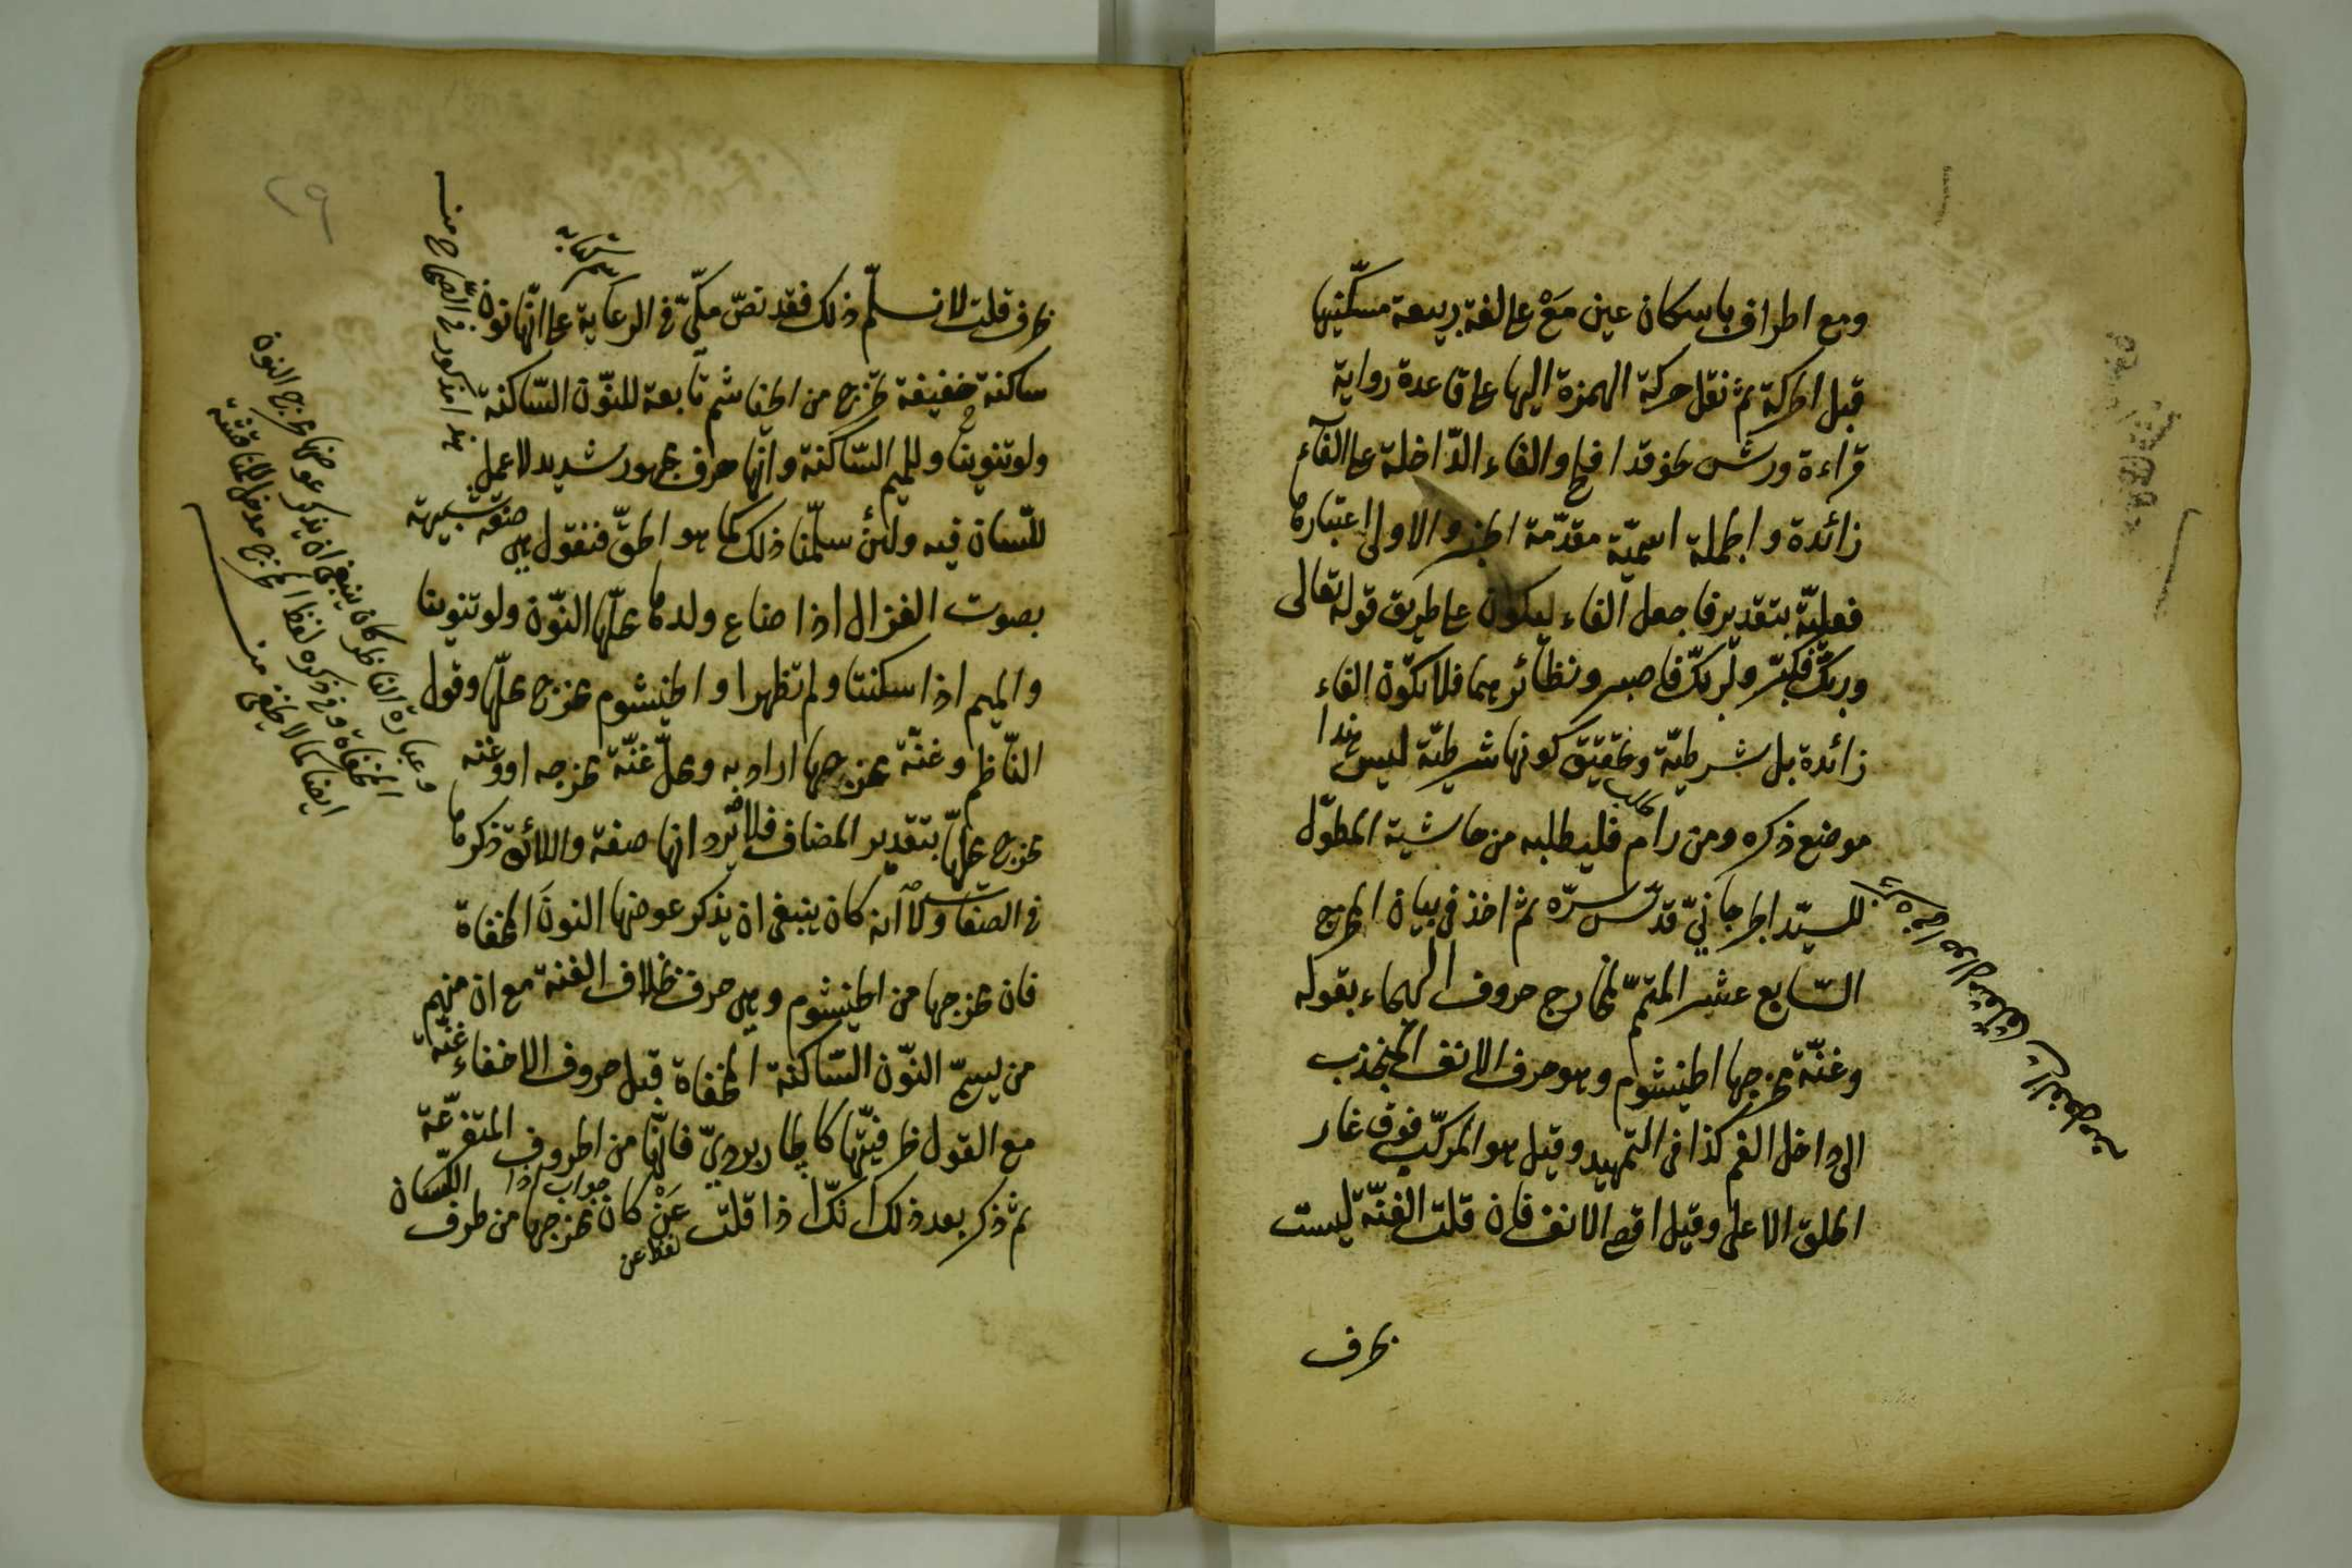 ومع اطراف باسكان عين مَعْ على لغة ربيعة مسكّنيها
قبل الحركة ثم نقل حركة الهمزة اليها على قاعدة رواية
قراءة ورش نحو قد افلح والفاء الدّاخلة على الفاء
زائدة والجملة اسميّة مقدّمة الخبر والاولى اعتبارها
فعليّة بتقدير فاجعل الفاء ليكون على طريق قوله تعالى
وربّك فكبّر ولربّك فاصبر ونظائرهما فلا تكون الفاء
زائدة بل شرطيّة وتحقيق كونها شرطيّة ليس هذا
موضع ذكره ومن رام فليطلبه من حاشية المطوّل
للسيّد الجرجانيّ قدّس سرّه ثم اخذ في بيان المخرج
السّابع عشر المتمّم لمخارج حروف الهجاء بقوله
وغنّة مخرجها الخيشوم وهو حرف الانف المنجذب
الى داخل الفم كذا في التمهيد وقيل هو المركّب فوق غار
الحلق الاعلى وقيل اقصى الانف فان قلت الغنّة ليست
بحرف
بحرف قلت لا نسلّم ذلك فقد نصّ مكّيّ في الرعاية على انّها نون
ساكنة خفيفة تخرج من الخياشم تابعة للنّون السّاكنة
ولو تنوينا وللميم السّاكنة وانّها حرف مجهور شديد لا عمل
للّسان فيه ولئن سلّمنا ذلك كما هو الحقّ فنقول هي صفة شبيهة
بصوت الغزال اذا ضاع ولدها محلّها النّون ولو تنوينا
والميم اذا سكنتا ولم تظهرا والخيشوم مخرج محلّها وقول
النّاظم وغنّة مخرجها اراد به ومحلّ غنّة مخرجه او وغنّة
مخرج محلّها بتقدير المضاف فلا يرد انها صفة واللائق ذكرها
في الصفات ولا انه كان ينبغي ان يذكر عوضها النون المخفاة
فان مخرجها من الخيشوم وهي حرف بخلاف الغنة مع ان منهم
من يسمّي النّون السّاكنة المخفاة قبل حروف الاخفاء غنّة
مع القول بحرفيّتها كالجاربرديّ فانّها من الحروف المتفرّعة
ثم ذكر بعد ذلك انّك اذا قلت عَنْ كان مخرجها من طرف اللّسان
لفظ عن
جواب اذا
هذا مذكور في الصّحاح منه
وعبارة الناظر كان ينبغي ان يذكر عوضها مخرج النون
المخفاة وفي ذكره لفظ المخرج مدخل للمناقشة
ايضا كما لا يخفى منه
٢٩